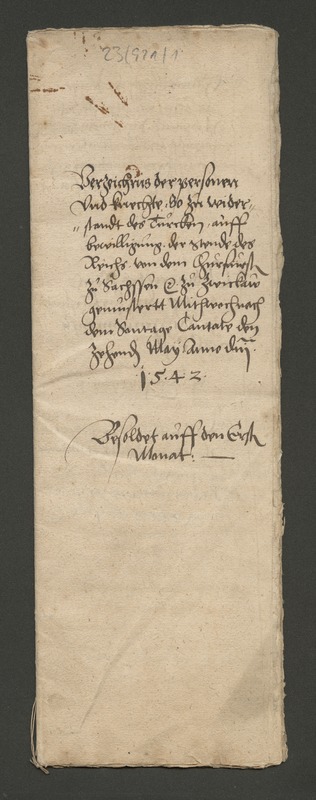 23/921/1
Verzeichnus der personen
vnd knechte, so zu wider-
standt des Turcken, auff
bewilligung, der stende des
Reichs, von dem Churfurst
zu Sachssen &c zu Zwickaw
gemustertt Mithwoch nach
dem Sontage Cantate den
zehend May Anno dni
1.5.4.2.
Besoldet auff den Erst
Monat: